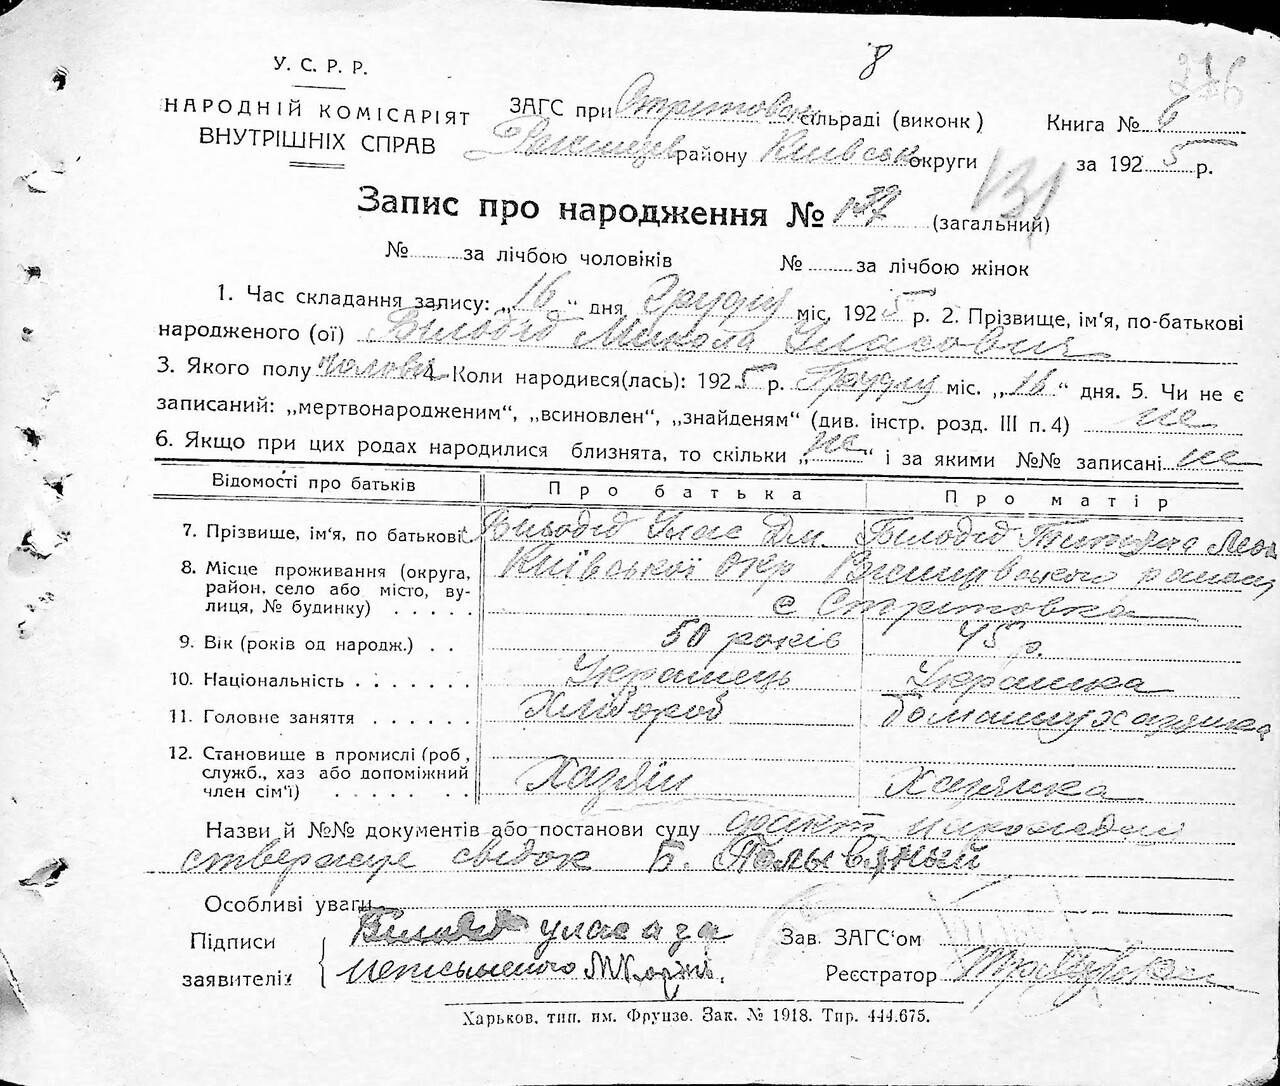 8
216
У. С. Р. Р.
НАРОДНІЙ КОМІСАРІЯТ
ВНУТРІШНІХ СПРАВ
ЗАГС при Стрітовск сільраді (виконк)
Книга № 6
району Київськ округи
за 1925 р.
131
Запис про народження № 137 (загальний)
№ за лічбою чоловіків № за лічбою жінок
1. Час складання запису: „16" дня Грудня міс. 1925 р. 2. Прізвище, ім'я, по-батькові
народженого (ої) Білодід Микола Уласович
3. Якого полу чолові 4. Коли народився(лась): 1925 р. Грудня міс. „16" дня. 5. Чи не є
записаний: „мертвонародженим", „всиновлен", „знайденям" (див. інстр. розд. III п. 4) не
6. Якщо при цих родах народилися близнята, то скільки „не" і за якими №№ записані не
Відомості про батьків Про батька Про матір
7. Прізвище, ім'я, по батькові Білодід Улас Дм. Білодід
8. Місце проживання (округа, район, село або місто, вулиця, № будинку) Київської окр
с Стрітовка
9. Вік (років од народж.) 50 років 45 р.
10. Національність Українець Українка
11. Головне заняття Хлібороб Домашня хазяйка
12. Становище в промислі (роб, служб., хаз або допоміжний член сім'ї) Хазяїн Хазяйка
Назви й №№ документів або постанови суду факт народження
ствержує свідок Б. Полывяный
Особливі уваги
Підписи
заявителів
Білодід уласа за
неписьменого
Зав. ЗАГС'ом
Реєстратор
Харьков. тип. им. Фрунзе. Зак. № 1918. Тир. 444.675.